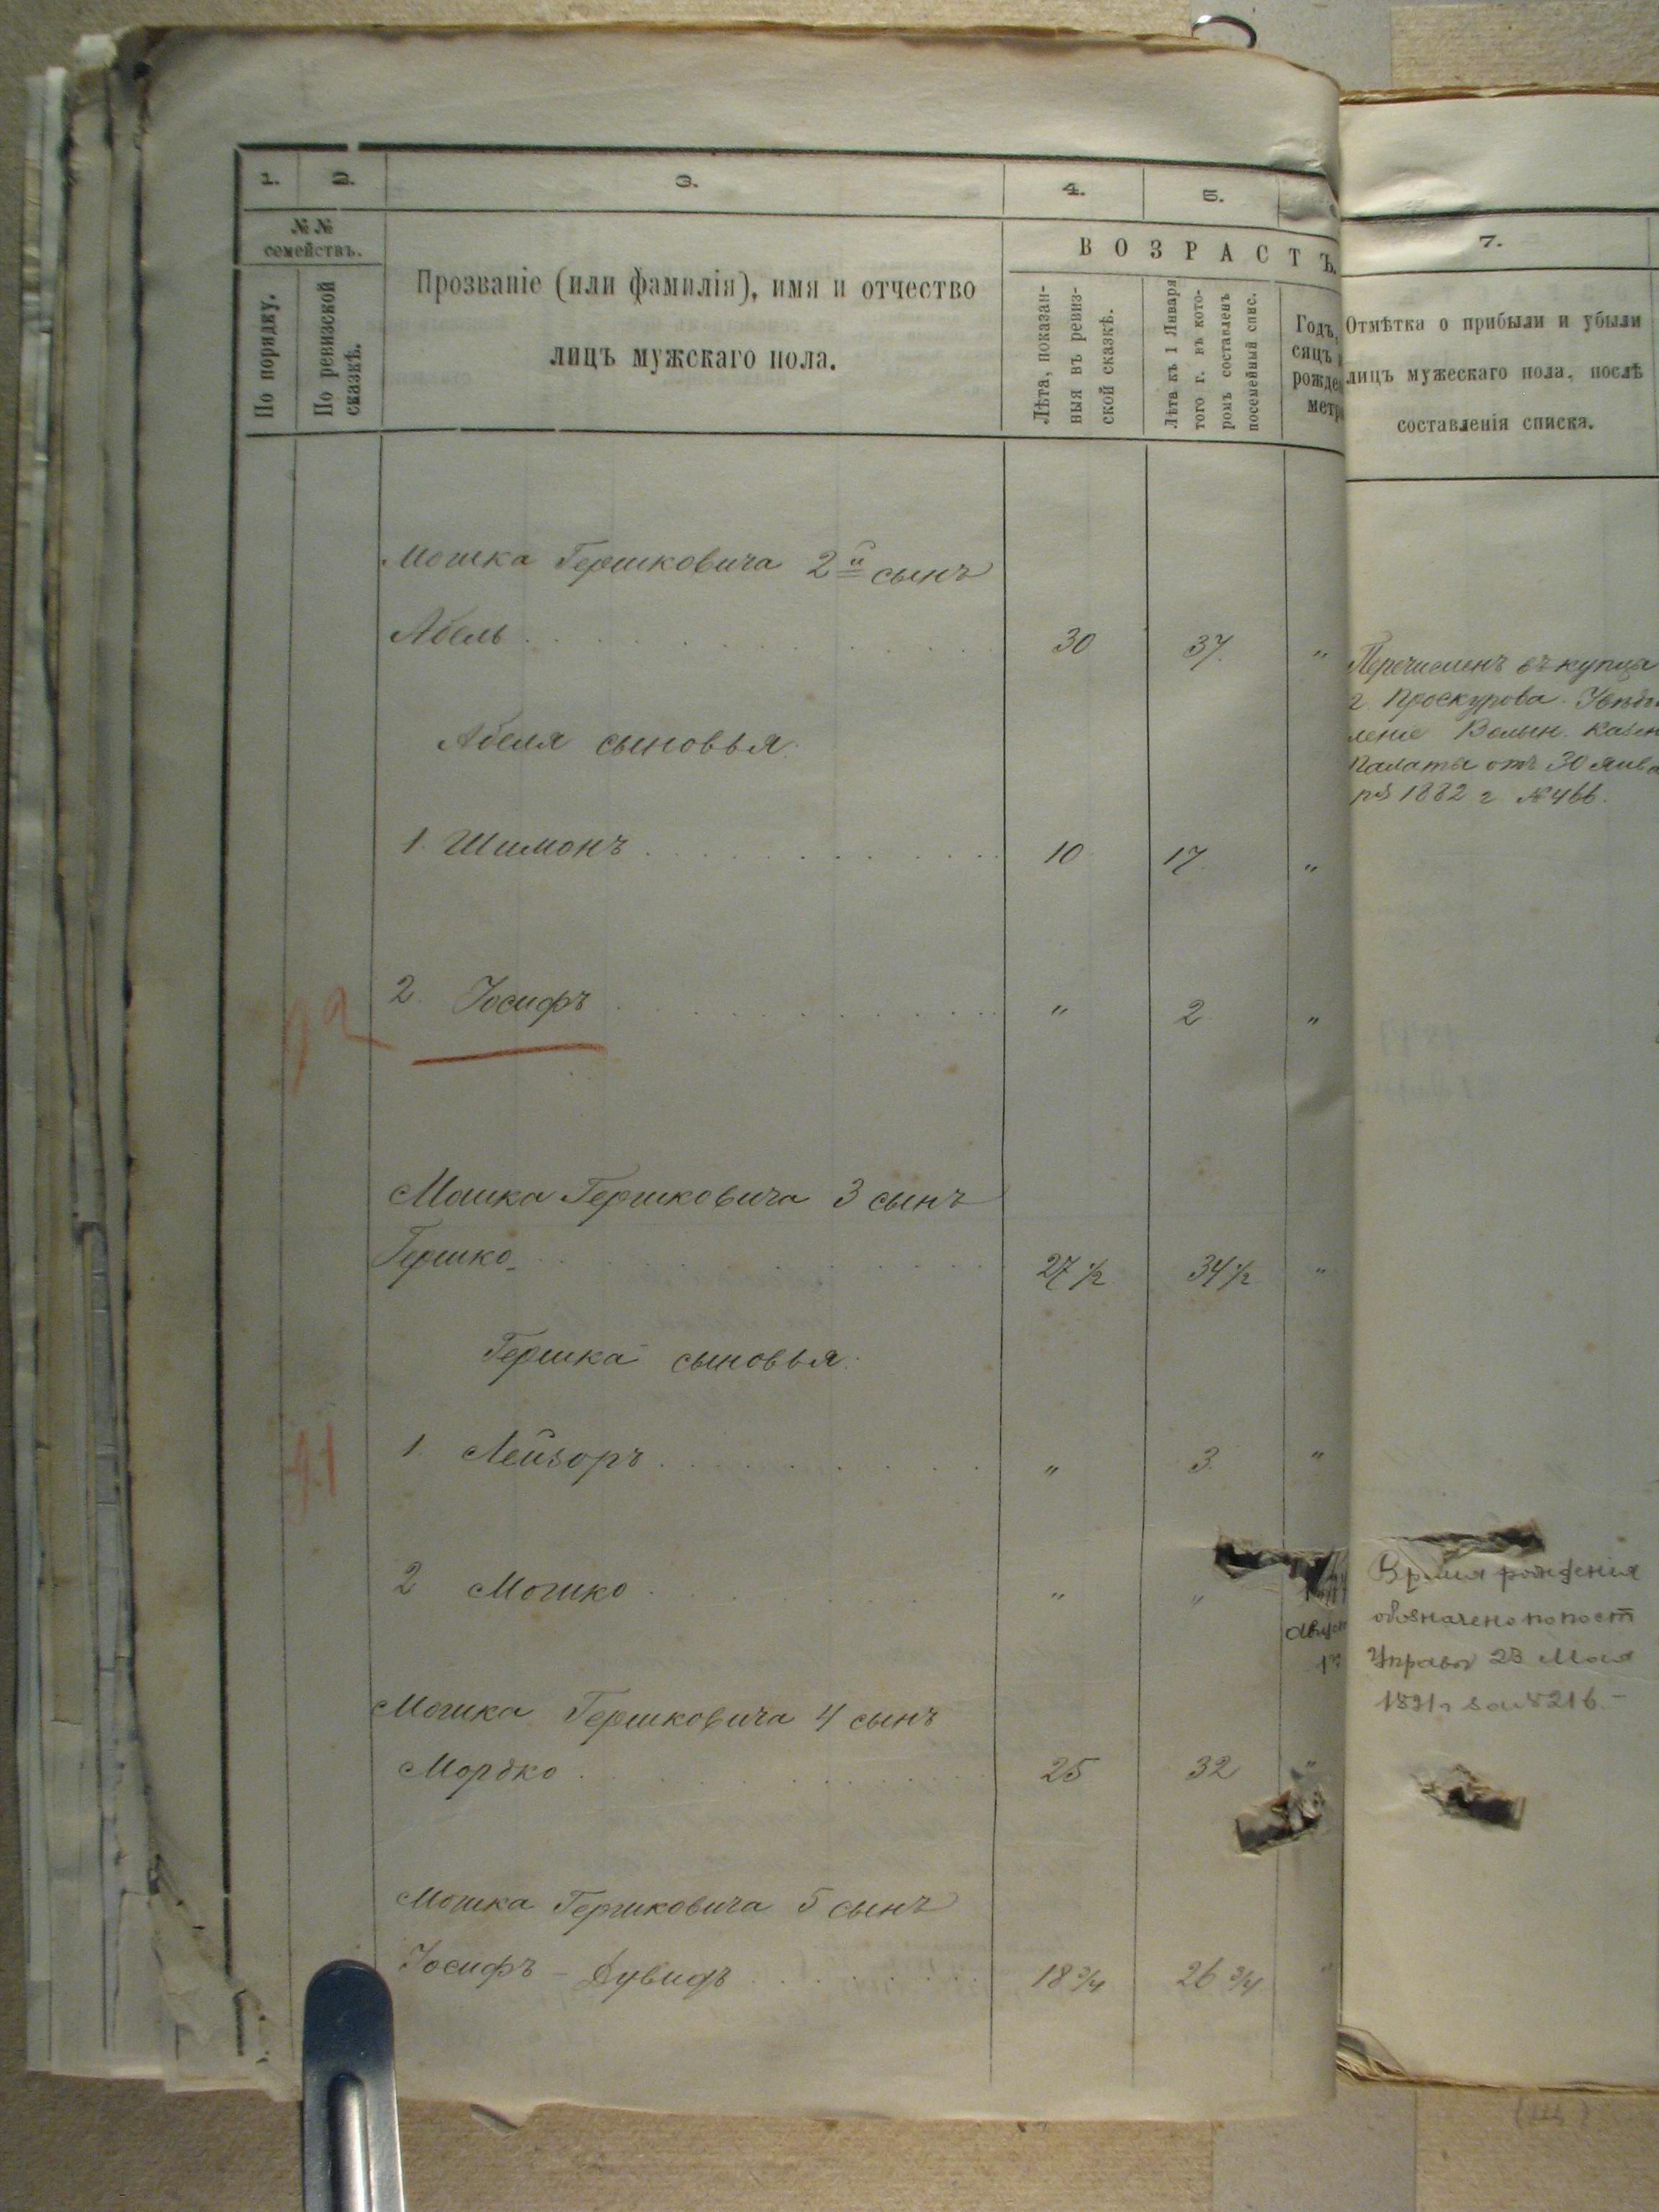 1. 2. 3. 4. 5. 7.
№№ семействъ.
По порядку.
По ревизской сказкѣ.
Прозваніе (или фамилія), имя и отчество
лицъ мужскаго пола.
ВОЗРАСТЪ.
Лѣта, показан-
ныя въ ревиз-
ской сказкѣ.
Лѣта къ 1 Января
того г. въ кото-
ромъ составленъ
посемейный спис.
Годъ,
сяцъ
рожден
метри
Отмѣтка о прибыли и убыли
лицъ мужескаго пола, послѣ
составленія списка.
Мошка Гершковича 2й сынъ
Абель 30 37. "
Перечисленъ въ купцы
г. Проскурова. Увѣдом
леніе Волын. Казен
Палаты отъ 30 Янва
ря 1882 г №466.
Абеля сыновья:
1. Шимонъ 10 17 "
2. Іосифъ " 2 "
Мошка Гершковича 3 сынъ
Гершко 27 1/2 34 1/2 "
Гершка сыновья:
41
1 Лейзоръ " 3. "
2 Мошко " "
Август
Время рожденія
обозначено по пост
Управы 23 Мая
1891 г за №216.-
Мошка Гершковича 4 сынъ
Мордко 25 32 "
Мошка Гершковича 5 сынъ
Іосифъ - Дувидъ 18 3/4 26 3/4 "